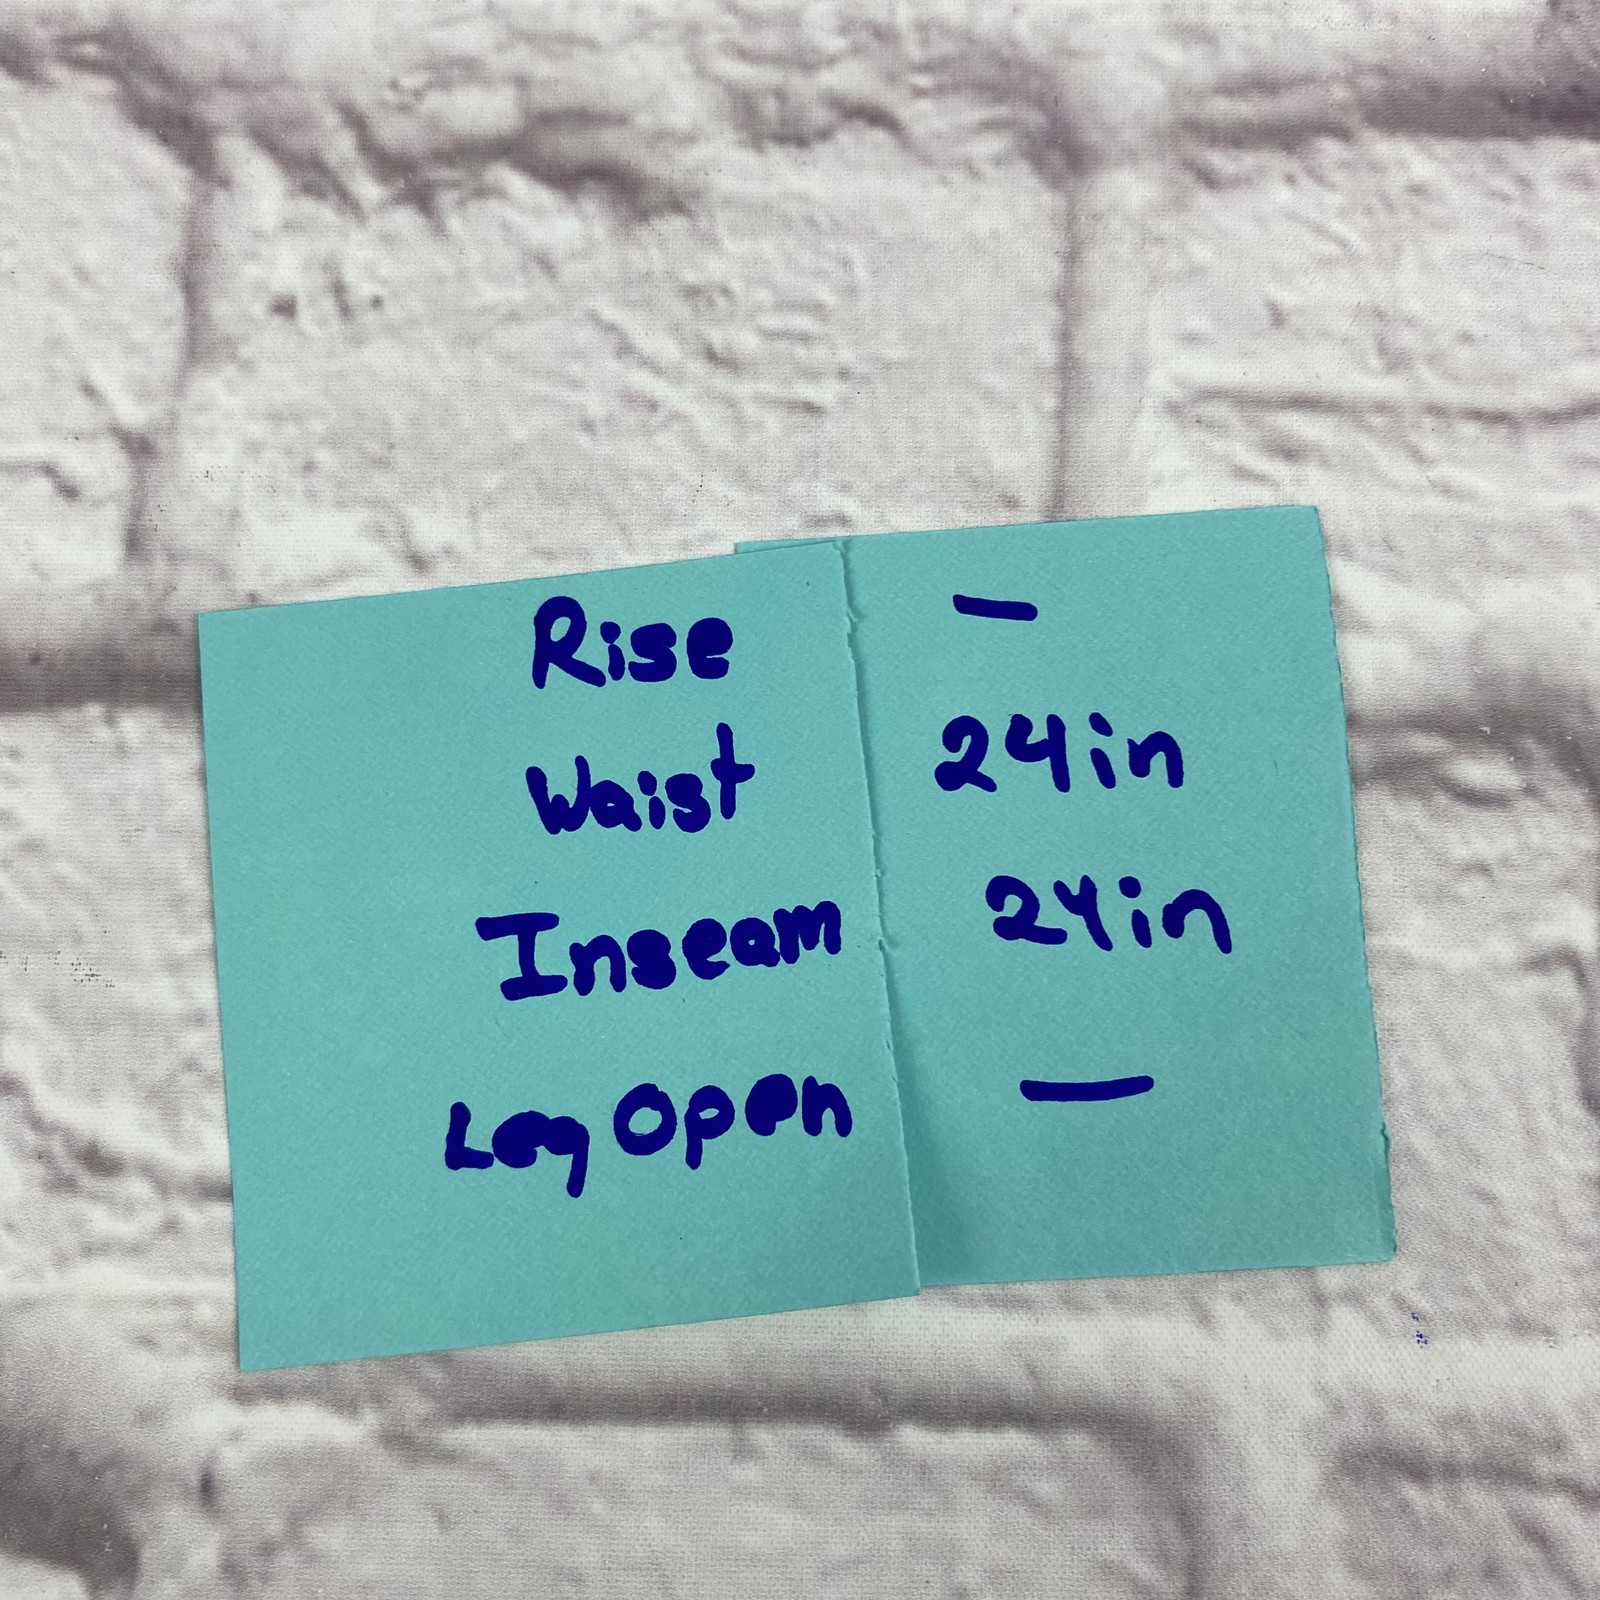 Rise —
Waist 24in
Inseam 24in
Leg Open —